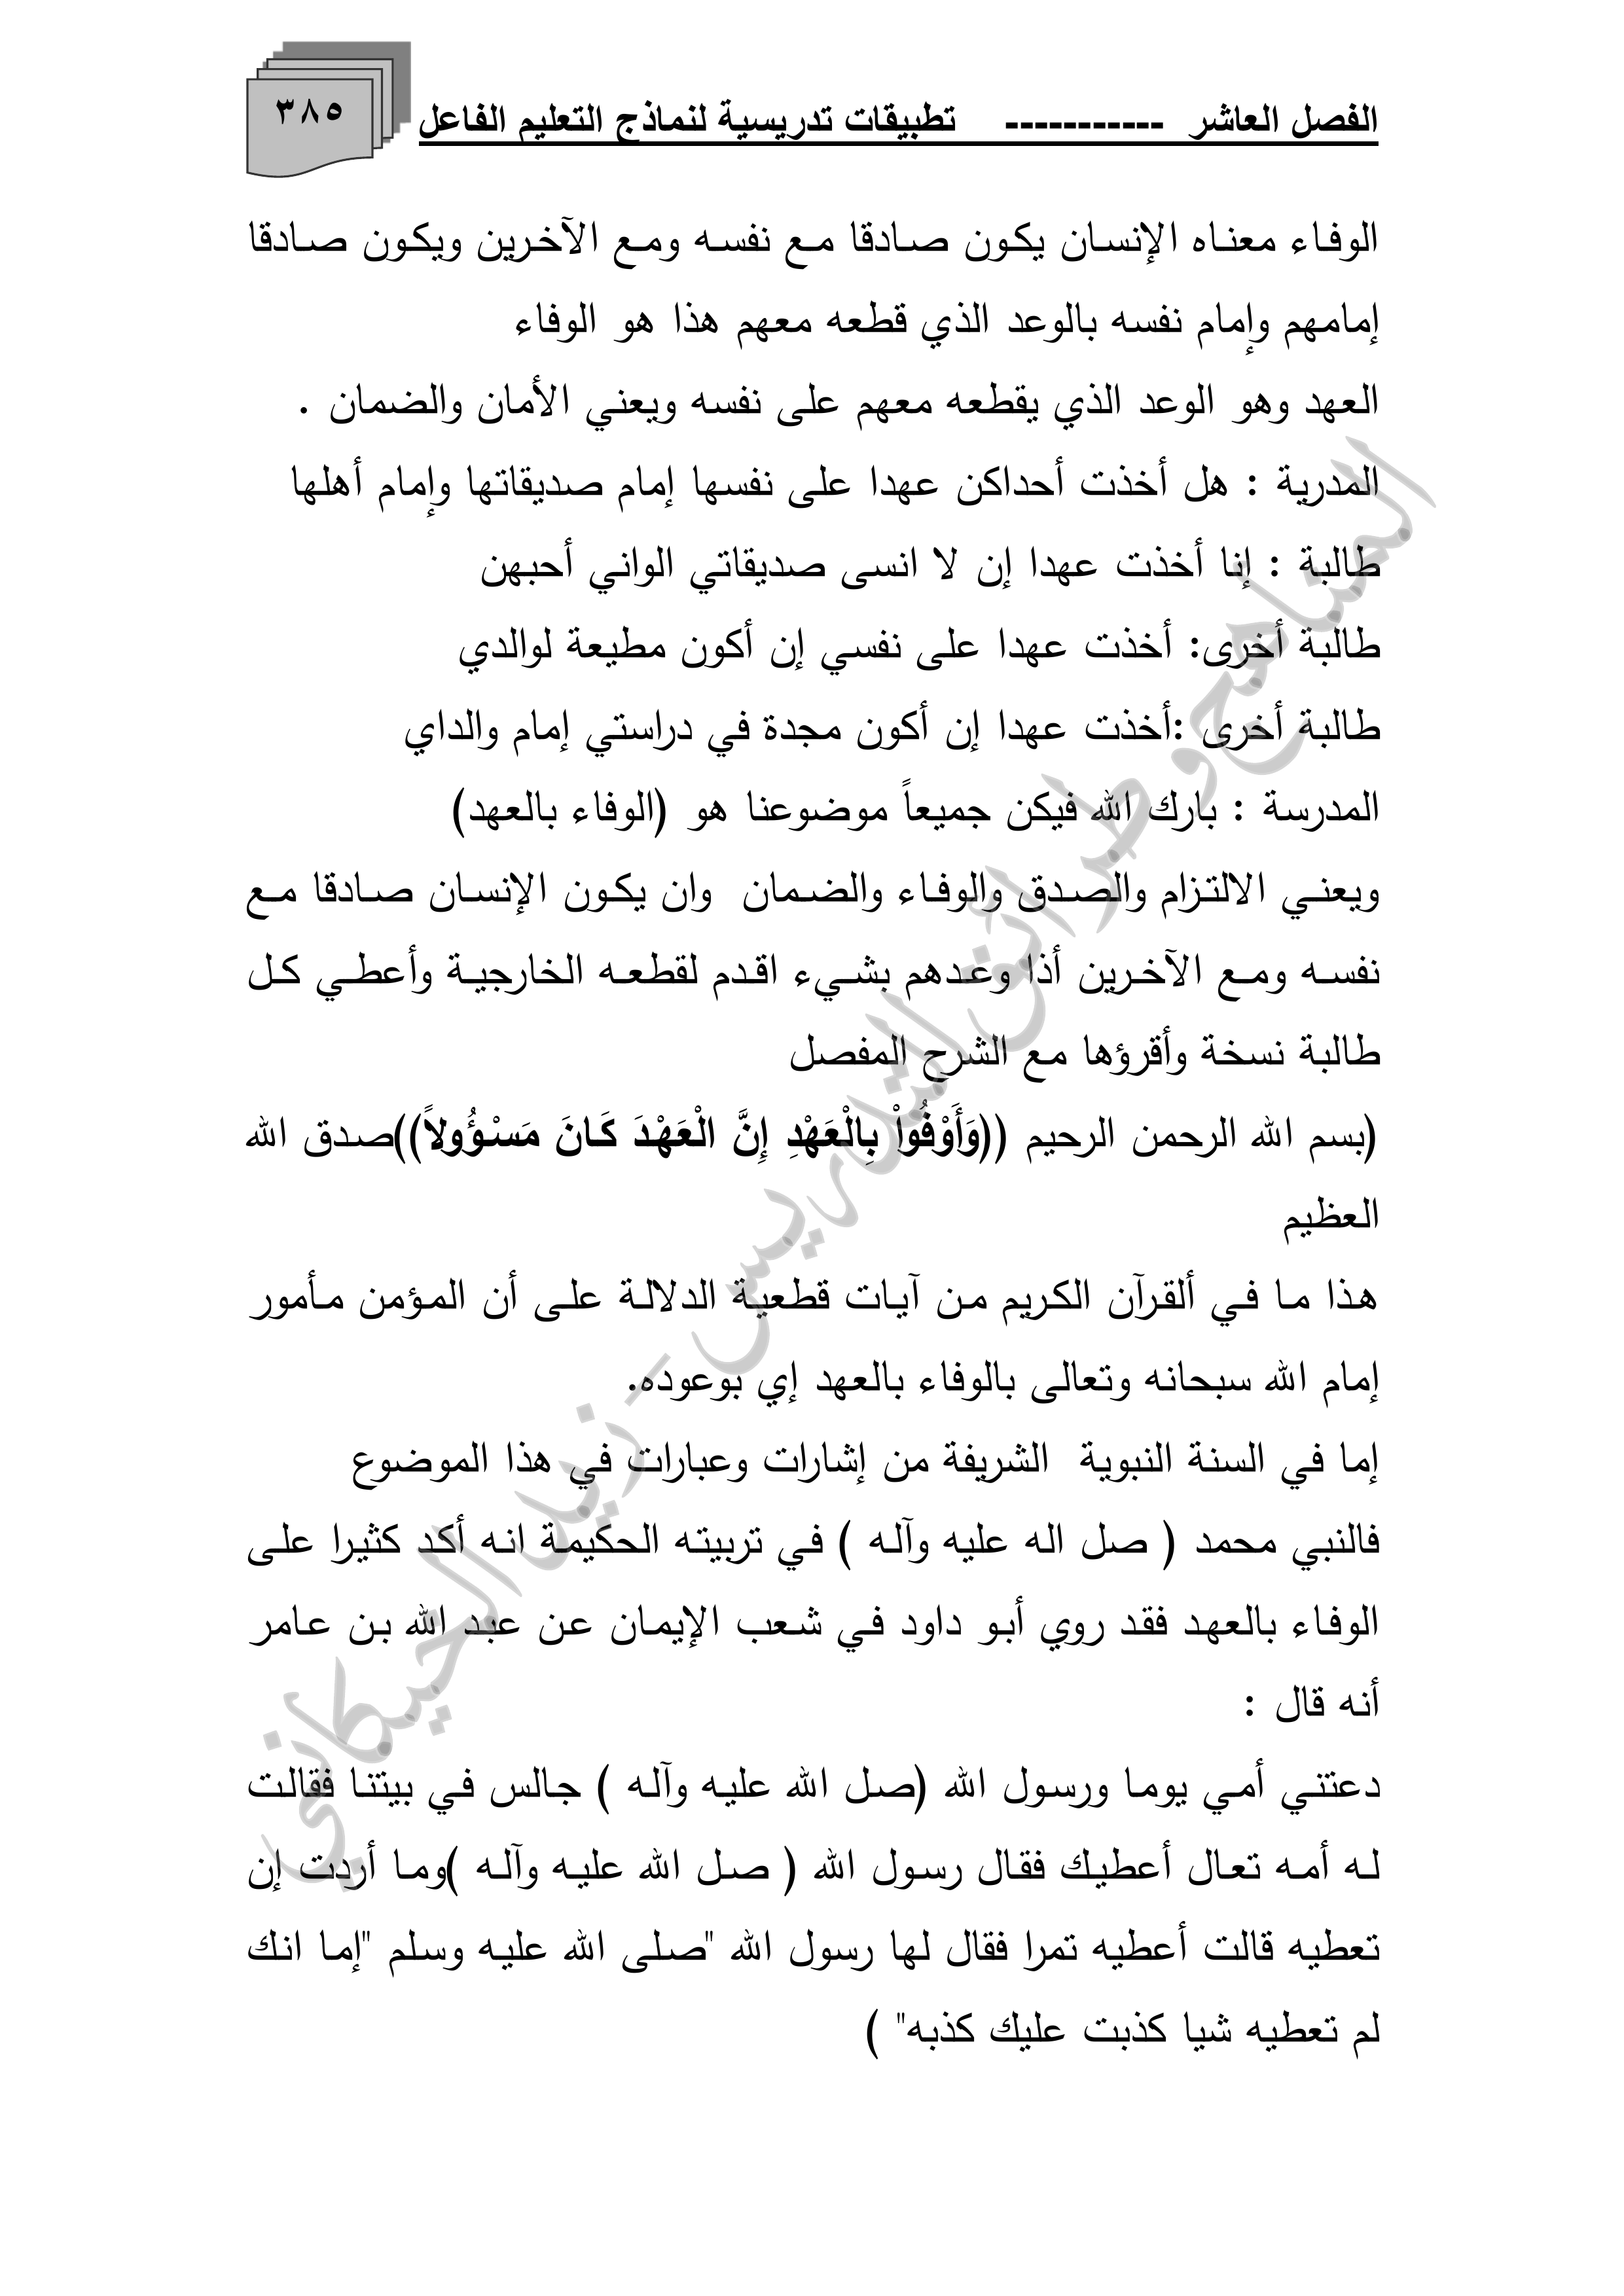 الفصل العاشر ----------- تطبيقات تدريسية لنماذج التعليم الفاعل
٣٨٥
الوفاء معناه الإنسان يكون صادقا مع نفسه ومع الآخرين ويكون صادقا
إمامهم وإمام نفسه بالوعد الذي قطعه معهم هذا هو الوفاء
العهد وهو الوعد الذي يقطعه معهم على نفسه ويعني الأمان والضمان .
المدرية : هل أخذت أحداكن عهدا على نفسها إمام صديقاتها وإمام أهلها
طالبة : إنا أخذت عهدا إن لا انسى صديقاتي الواني أحبهن
طالبة أخرى: أخذت عهدا على نفسي إن أكون مطيعة لوالدي
طالبة أخرى :أخذت عهدا إن أكون مجدة في دراستي إمام والداي
المدرسة : بارك الله فيكن جميعاً موضوعنا هو (الوفاء بالعهد)
ويعني الالتزام والصدق والوفاء والضمان وان يكون الإنسان صادقا مع
نفسه ومع الآخرين أذا وعدهم بشيء اقدم لقطعه الخارجية وأعطي كل
طالبة نسخة وأقرؤها مع الشرح المفصل
(بسم الله الرحمن الرحيم ((وَأَوْفُواْ بِالْعَهْدِ إِنَّ الْعَهْدَ كَانَ مَسْؤُولاً))صدق الله
العظيم
هذا ما في ألقرآن الكريم من آيات قطعية الدلالة على أن المؤمن مأمور
إمام الله سبحانه وتعالى بالوفاء بالعهد إي بوعوده.
إما في السنة النبوية الشريفة من إشارات وعبارات في هذا الموضوع
فالنبي محمد ( صل اله عليه وآله ) في تربيته الحكيمة انه أكد كثيرا على
الوفاء بالعهد فقد روي أبو داود في شعب الإيمان عن عبد الله بن عامر
أنه قال :
دعتني أمي يوما ورسول الله (صل الله عليه وآله ) جالس في بيتنا فقالت
له أمه تعال أعطيك فقال رسول الله ( صل الله عليه وآله )وما أردت إن
تعطيه قالت أعطيه تمرا فقال لها رسول الله "صلى الله عليه وسلم "إما انك
لم تعطيه شيا كذبت عليك كذبه" )
المناهج وطرائق التدريس - زيد الخيكاني